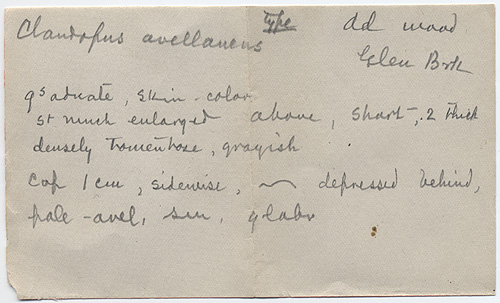 Claudopus avellaneus type dd wood
Glen Brk
gs adnate, skin-color
st much enlarged above, short, .2 thick
densely tomentose, grayish
cap 1 cm, sidewise, depressed behind,
pale-avel, sm, glabr